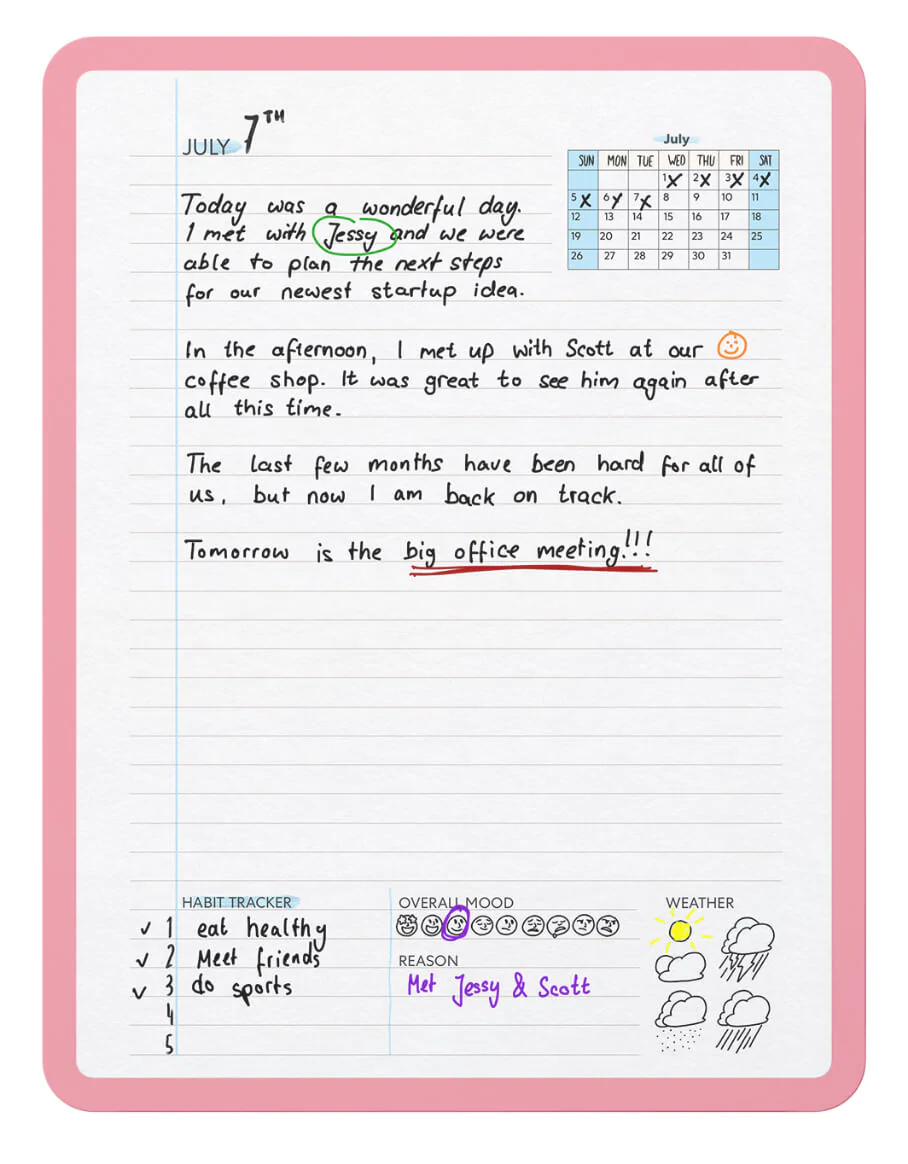 JULY 7TH
July
SUN MON TUE WED THU FRI SAT
1 X 2 X 3 X 4 X
5 X 6 X 7 X 8 9 10 11
12 13 14 15 16 17 18
19 20 21 22 23 24 25
26 27 28 29 30 31
Today was a wonderful day.
I met with Jessy and we were
able to plan the next steps
for our newest startup idea.
In the afternoon, I met up with Scott at our
coffee shop. It was great to see him again after
all this time.
The last few months have been hard for all of
us, but now I am back on track.
Tomorrow is the big office meeting!!!
HABIT TRACKER
✓ 1 eat healthy
✓ 2 Meet friends
✓ 3 do sports
4
5
OVERALL MOOD
REASON
Met Jessy & Scott
WEATHER